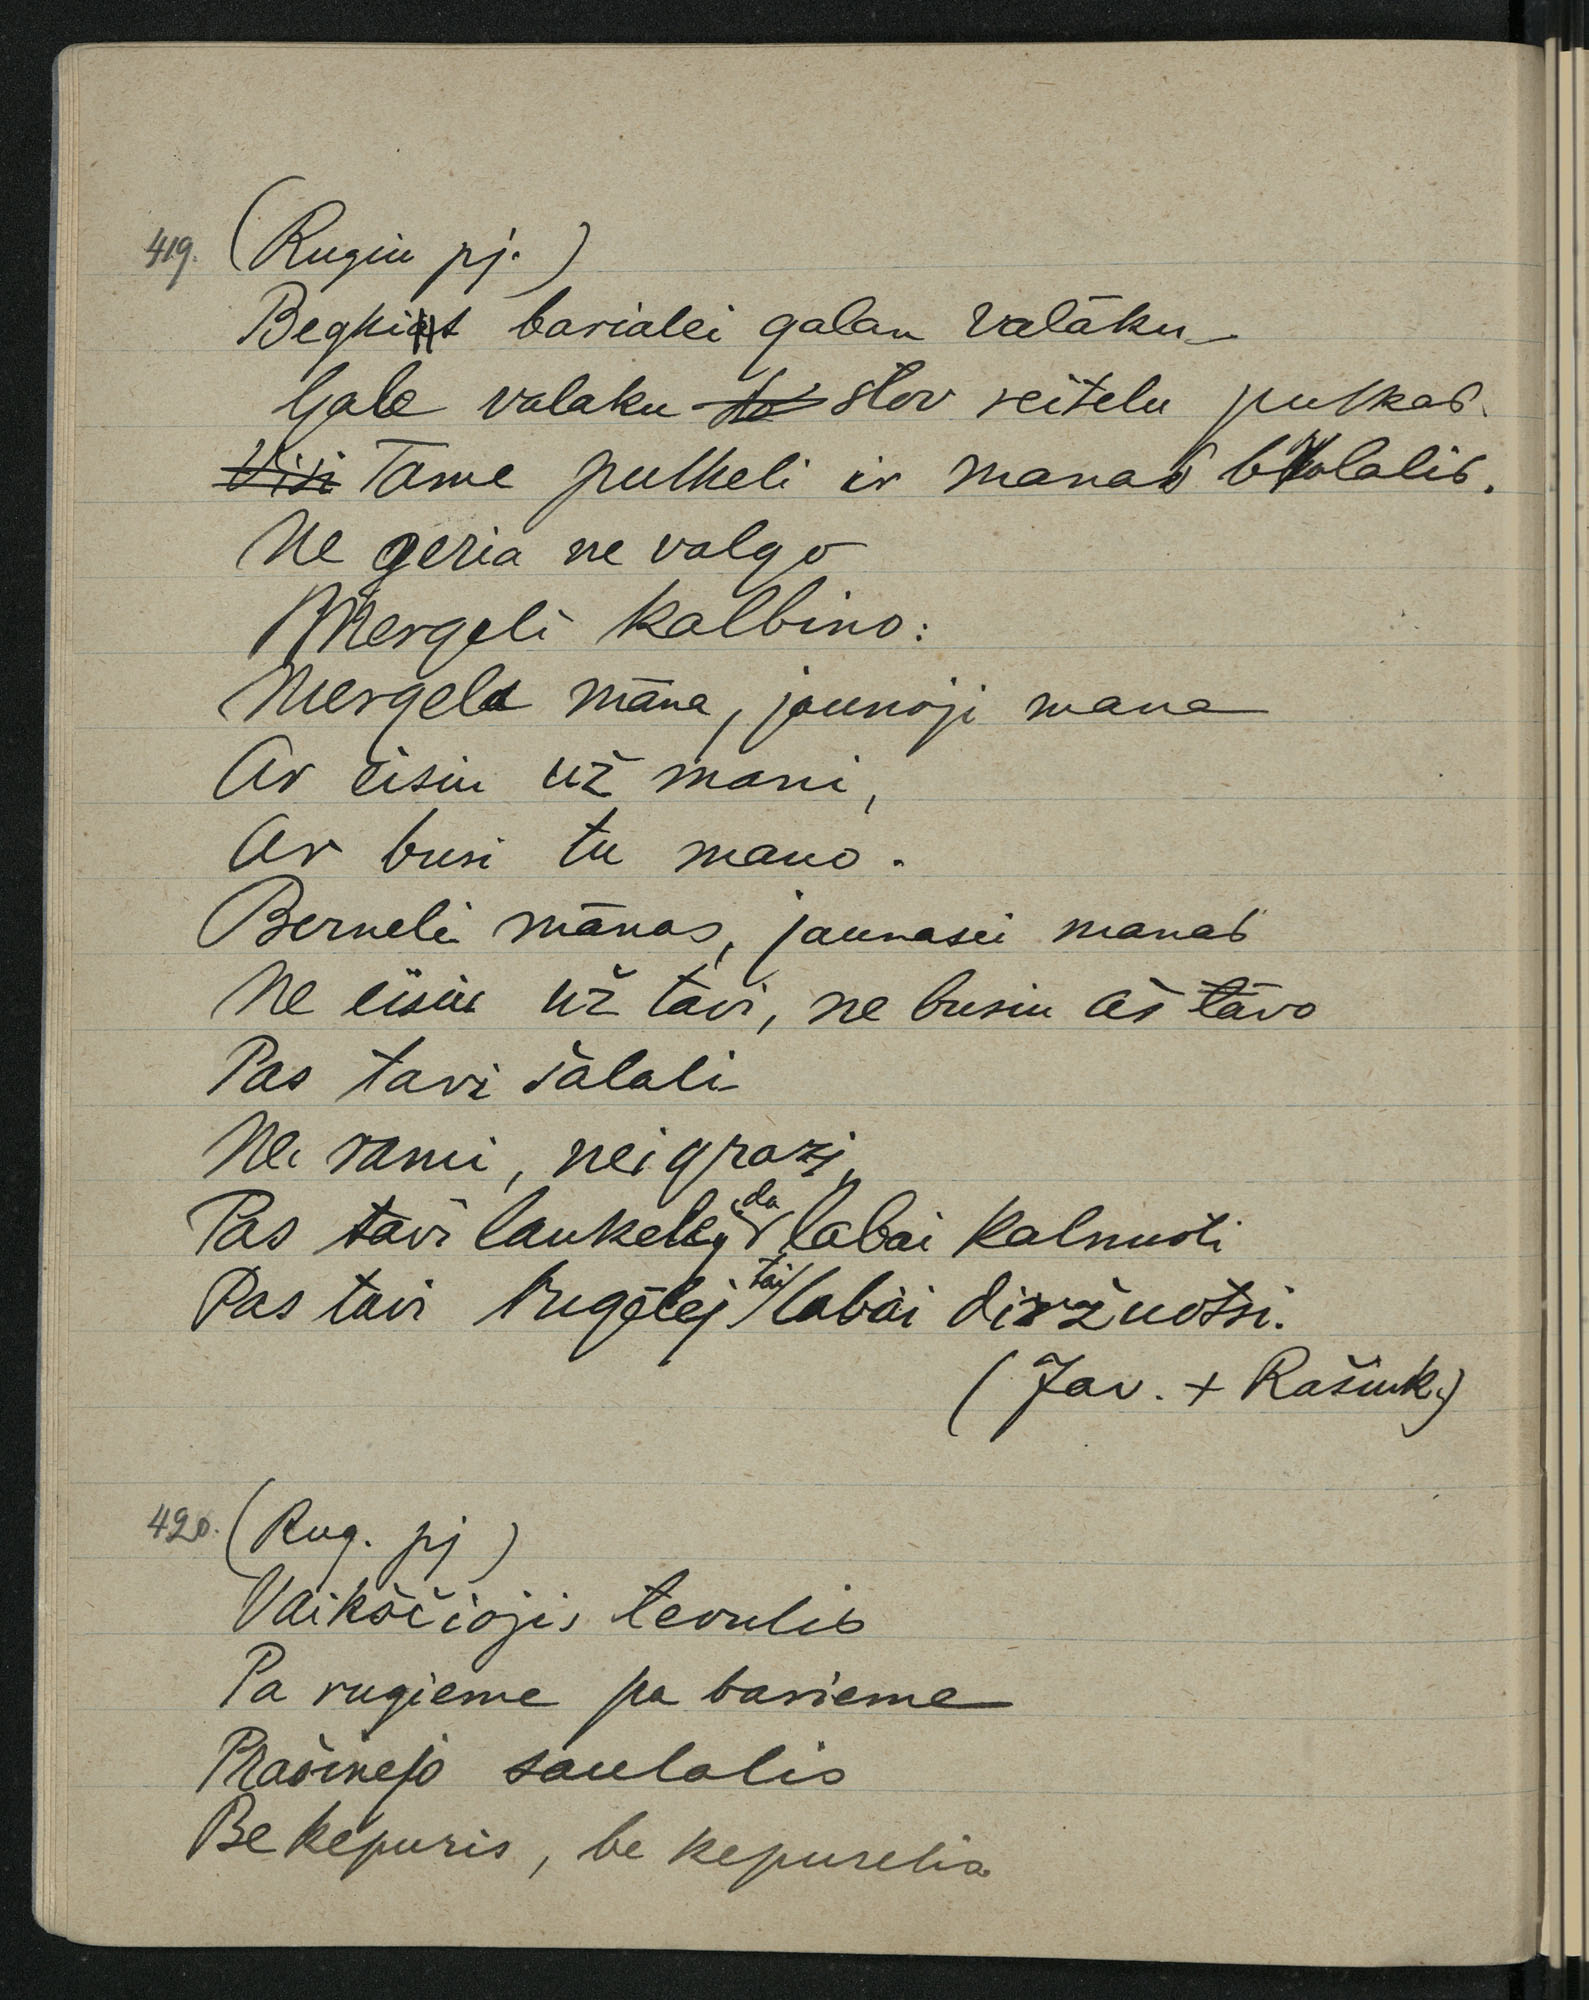 419. (Rugiu pj.)
Begkit barialei galan valāku
Gale valaku stov reitelu pulkas.
Tame pulkeli ir manas brolalis.
Ne geria ne valgo
Mergeli kalbino:
Mergela māna, jaunoji mana
Ar eisiu už mani,
Ar busi tu mano.
Berneli mānas, jaunasei manas
Ne eisiu už tavi, ne busiu aš tāvo
Pas tavi šālali
Nei rami, nei grazi,
Pas tavi laukelej da labai kalnuoti
Pas tavi rugēlej tai labai diržuotsi.
(Jav. + Rašiuk.)
420. (Rug. pj)
Vaikščiojis tevulis
Pa rugieme pa barieme
Prašinejo saulalis
Be kepuris, be kepurelis